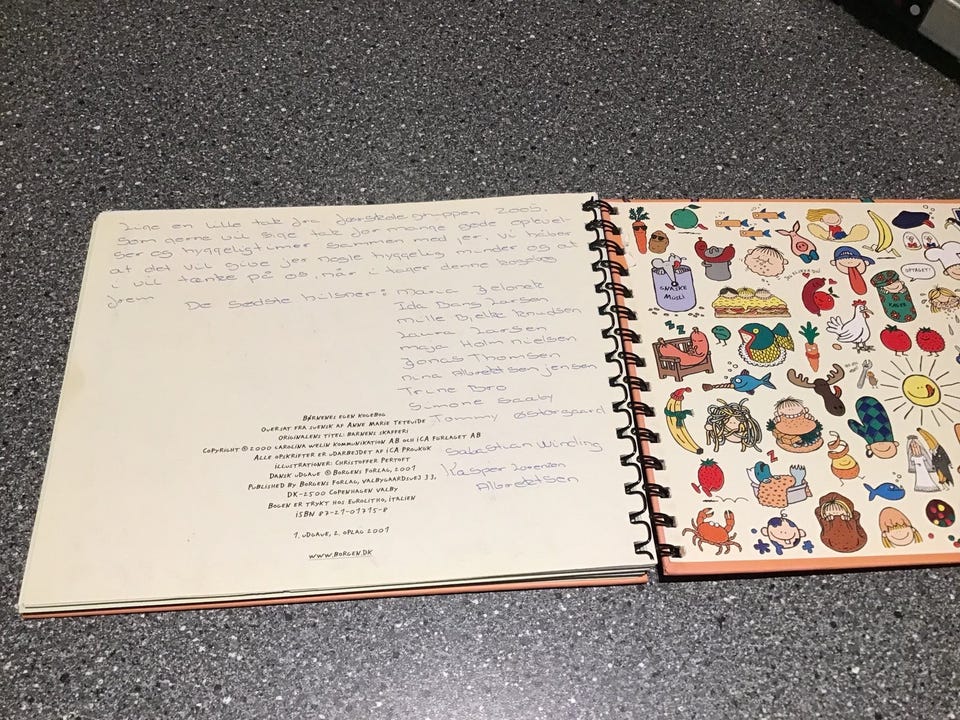 June en lille tak fra førskolegruppen 2005.
som gerne vil sige tak for mange gode oplevel-
ser og hyggelig timer sammen med jer. vi håber
at det vil give jer nogle hyggelig minder og at
i vil tænke på os når i tager denne kogebog
frem De sødste hilsner: Maria
Ida Bang Larsen
Mille Bjelke Knudsen
Laura Larsen
Maja Holm Nielsen
Jonas Thomsen
Nina Albrettsen Jensen
Trine Bro
Simone Saaby
Tommy Østergaard
Sebastian Winding
Kasper Lorenzen
Albrettsen
BØRNENES EGEN KOGEBOG
OVERSAT FRA SVENSK AF ANNE MARIE TETEVIDE
ORIGINALENS TITEL: BARNENS SKAFFERI
COPYRIGHT © 2000 CAROLINA WELIN KOMMUNIKATION AB OCH ICA FÖRLAGET AB
ALLE OPSKRIFTER ER UDARBEJDET AF ICA PROVKÖK
ILLUSTRATIONER: CHRISTOFFER PERTOFT
DANSK UDGAVE © BORGENS FORLAG, 2001
PUBLISHED BY BORGENS FORLAG, VALBYGAARDSVEJ 33,
DK-2500 COPENHAGEN VALBY
BOGEN ER TRYKT HOS EUROLITHO, ITALIEN
ISBN 87-21-01715-8
1. UDGAVE, 2. OPLAG 2001
WWW.BORGEN.DK
GNASKE
MÜSLI
OPTAGET!
KAGER